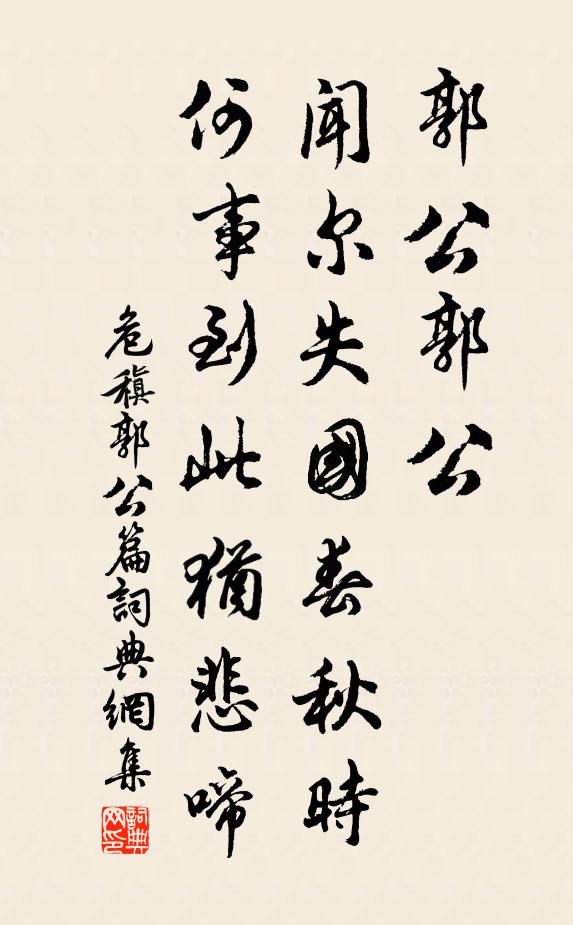 郭公郭公
闻尔失國春秋時
何事到此猶悲啼
危稹郭公篇詞典網集
詞典网印